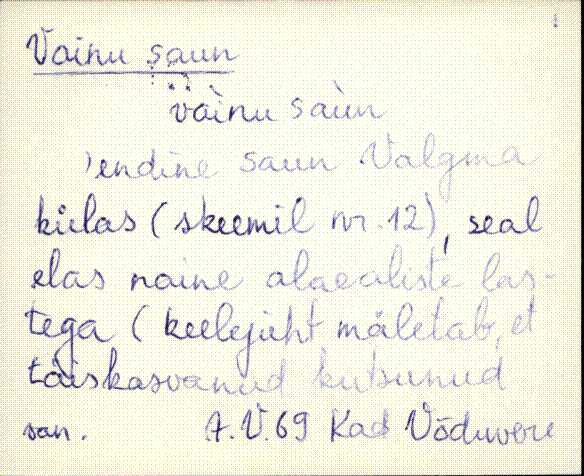 Vainu saun
vàinu saùn
'endine saun Valgma
külas (skeemil nr. 12), seal
elas naine alaealiste las-
tega (keelejuht mäletab, et
täiskasvanud kutsunud
san. A.V.69 Kad Võduvere